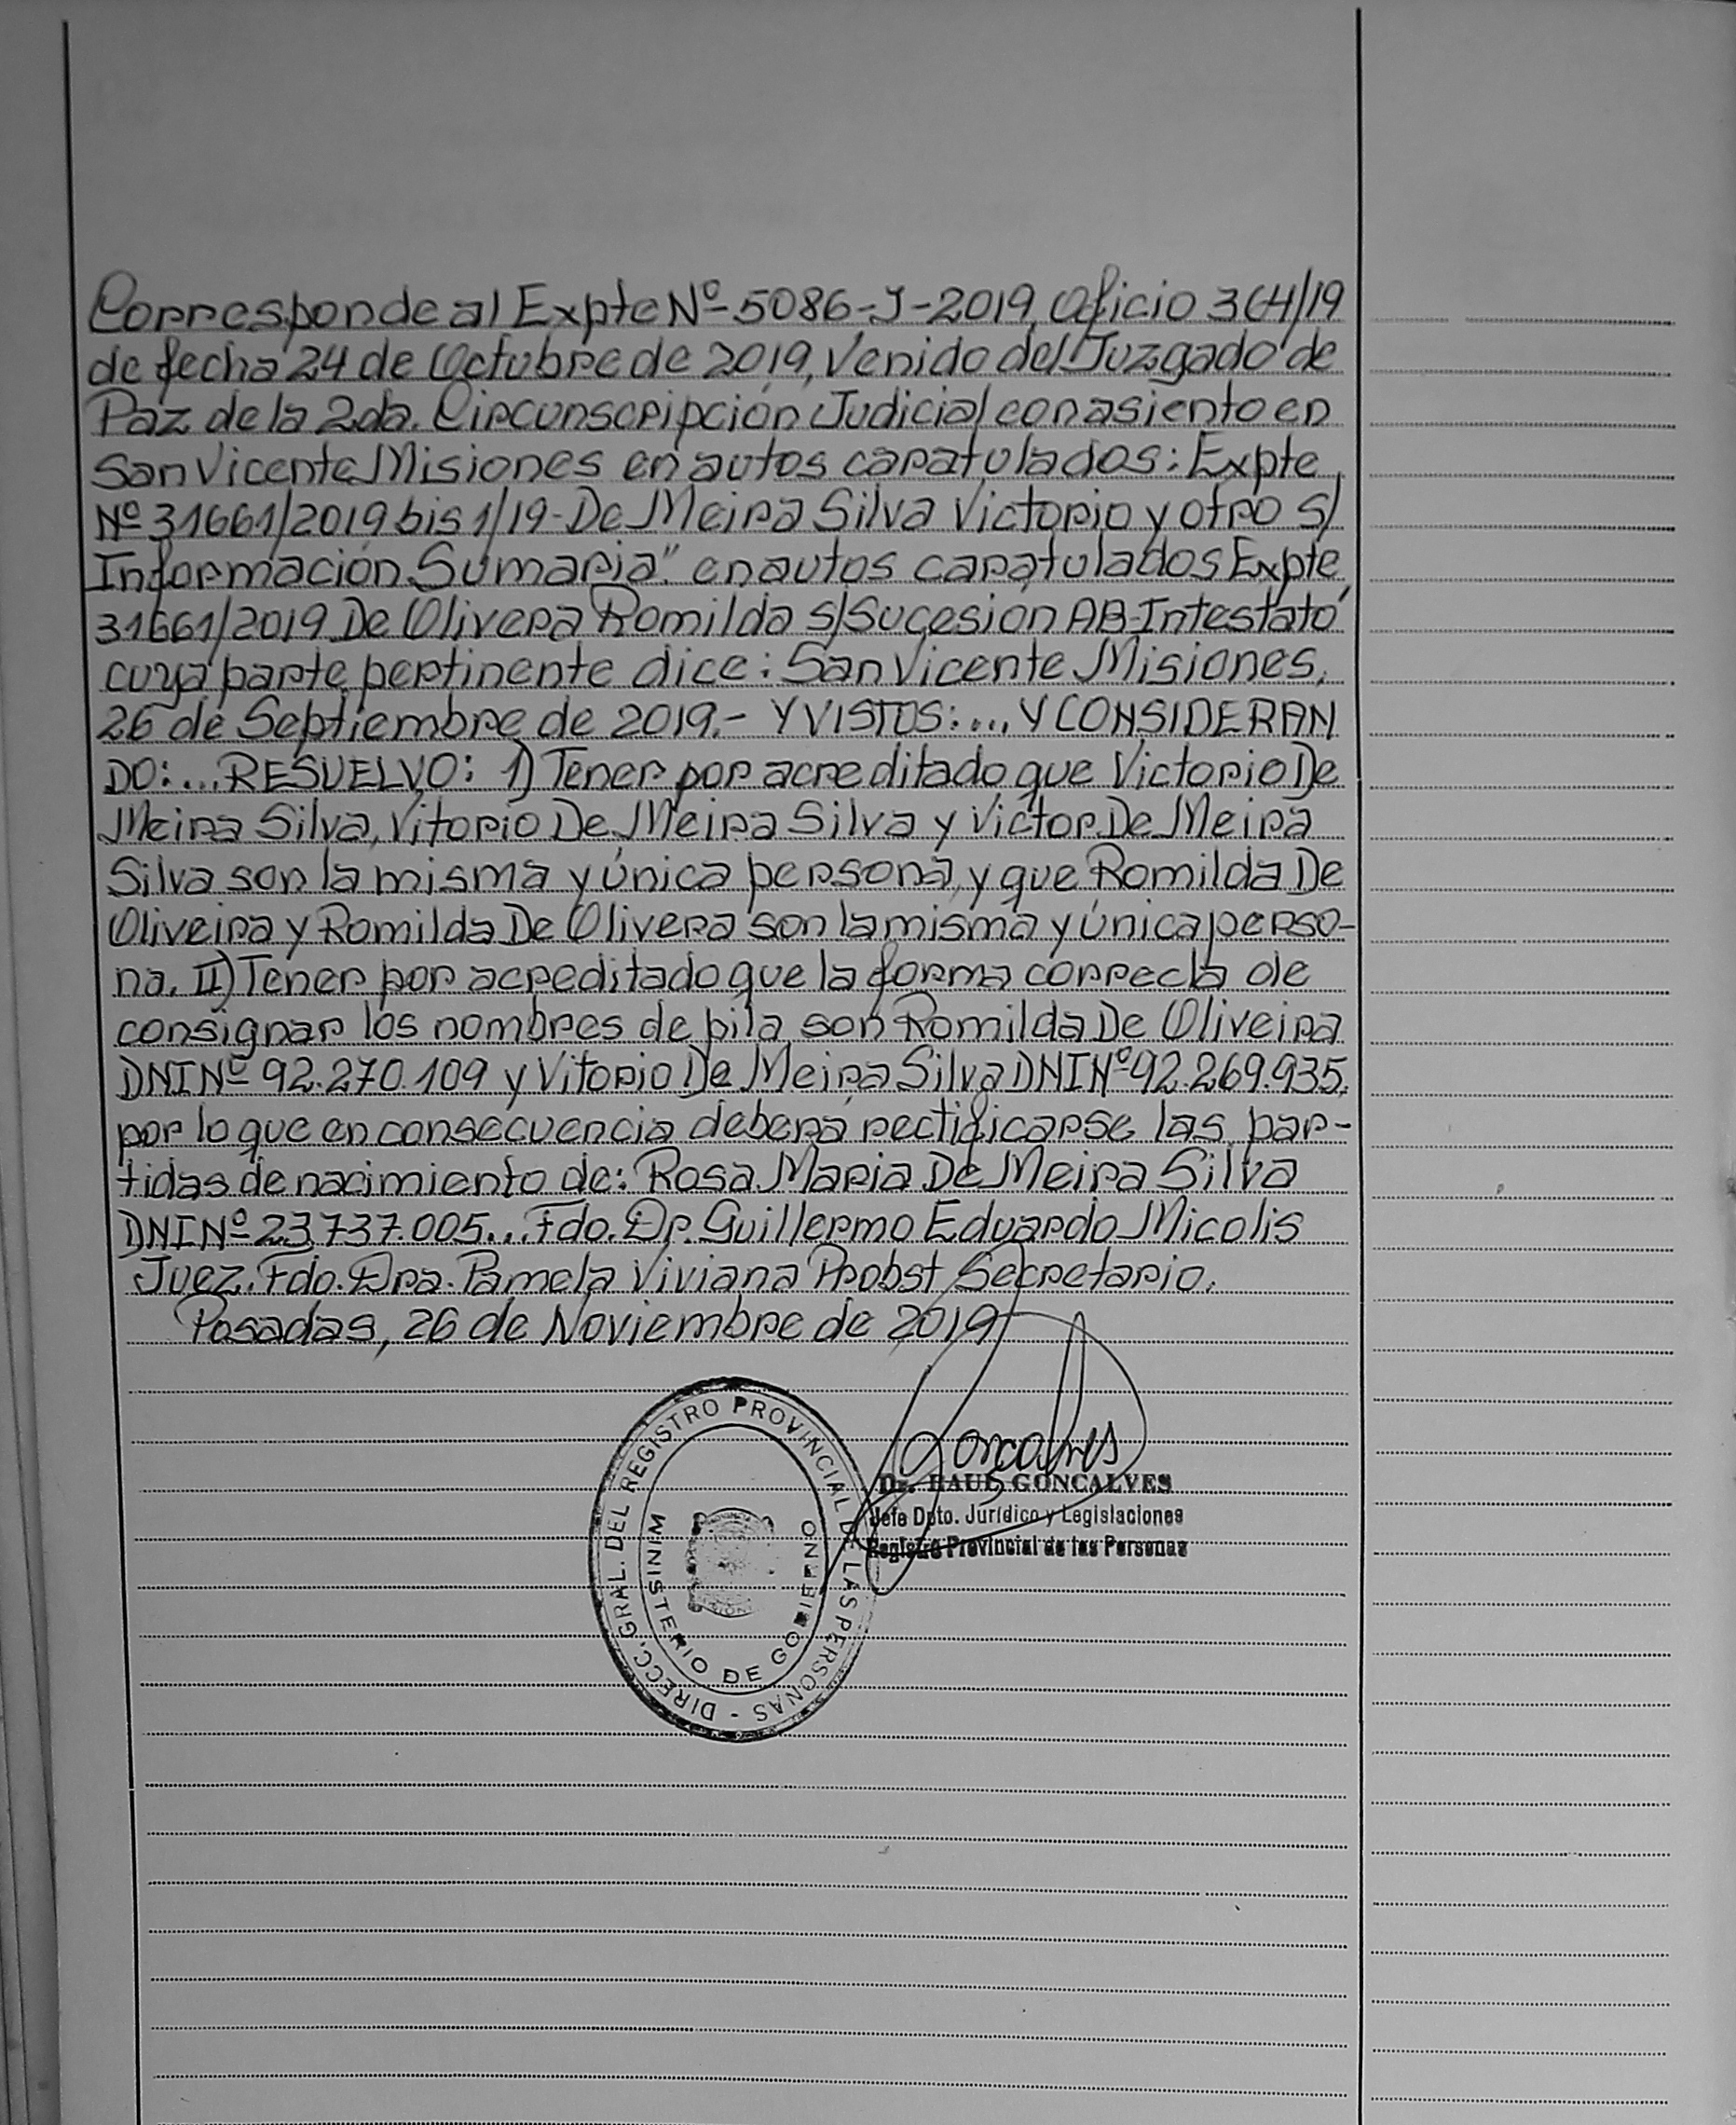 Corresponde al Expte Nº 5086-J-2019, Oficio 364/19
de fecha 24 de Octubre de 2019, Venido del Juzgado de
Paz de la 2da. Circunscripción Judicial con asiento en
San Vicente Misiones en autos caratulados: Expte
Nº 31661/2019 bis 1/19-De Meira Silva Victorio y otro s/
Información Sumaria" en autos caratulados Expte
31661/2019 De Olivera Romilda s/Sucesión AB-Intestato
cuya parte pertinente dice: San Vicente Misiones,
26 de Septiembre de 2019.- Y VISTOS:... Y CONSIDERAN
DO:...RESUELVO: 1) Tener por acreditado que Victorio De
Meira Silva, Vitorio De Meira Silva y Victor De Meira
Silva son la misma y única persona, y que Romilda De
Oliveira y Romilda De Olivera son la misma y única perso-
na. II) Tener por acreditado que la forma correcta de
consignar los nombres de pila son Romilda De Oliveira
DNI Nº 92.270.109 y Vitorio De Meira Silva DNI Nº 92.269.935,
por lo que en consecuencia deberá rectificarse las par-
tidas de nacimiento de: Rosa Maria De Meira Silva
DNI Nº 23.737.005... Fdo. Dr. Guillermo Eduardo Micolis
Juez. Fdo. Dra. Pamela Viviana Probst Secretario.
Posadas, 26 de Noviembre de 2019
Goncalves
Dr. RAUL GONCALVES
Jefe Dpto. Jurídico y Legislaciones
Registro Provincial de las Personas
DIRECC. GRAL. DEL REGISTRO PROVINCIAL DE LAS PERSONAS -
MINISTERIO DE GOBIERNO